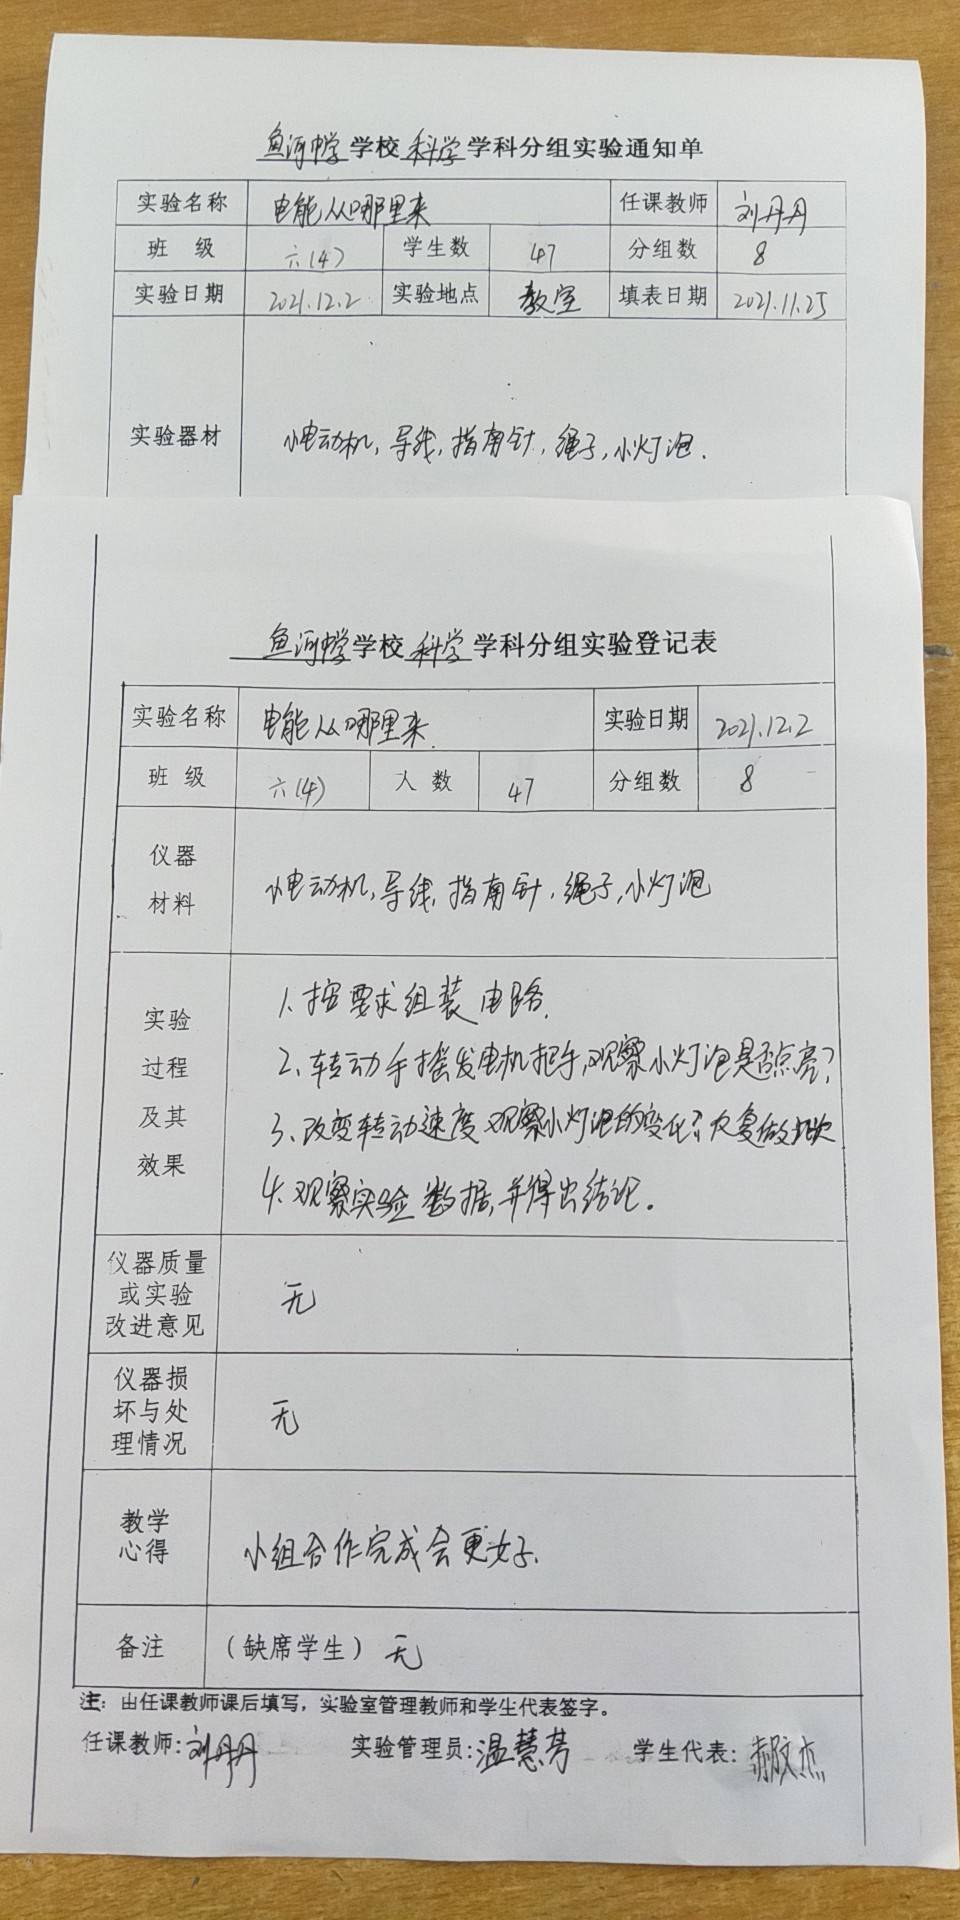 鱼河中学学校科学学科分组实验通知单
实验名称 电能从哪里来 任课教师 刘丹丹
班 级 六(4) 学生数 47 分组数 8
实验日期 2021.12.2 实验地点 教室 填表日期 2021.11.25
实验器材 小电动机,导线,指南针,绳子,小灯泡.
鱼河中学学校科学学科分组实验登记表
实验名称 电能从哪里来. 实验日期 2021.12.2
班 级 六(4) 人 数 47 分组数 8
仪器
材料
小电动机,导线,指南针,绳子,小灯泡
实验
过程
及其
效果
1.按要求组装电路.
2.转动手摇发电机把手,观察小灯泡是否点亮?
3.改变转动速度观察小灯泡的变化?反复做
4.观察实验数据,并得出结论。
仪器质量
或实验
改进意见
无
仪器损
坏与处
理情况
无
教学
心得
小组合作完成会更好.
备注 (缺席学生)无
注:由任课教师课后填写,实验室管理教师和学生代表签字。
任课教师:刘丹丹 实验管理员:温慧芳 学生代表:郝文杰